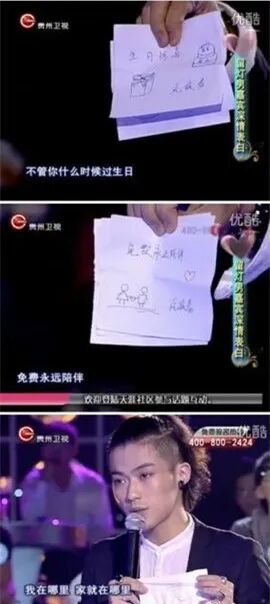 贵州卫视
优酷
生日惊喜
留灯男嘉宾深情表白
不管你什么时候过生日
贵州卫视
优酷
免费永远陪伴
留灯男嘉宾深情表白
免费永远陪伴
欢迎登陆天涯社区参与话题互动。
贵州卫视
优酷
400-800-2424
我在哪里 家就在哪里